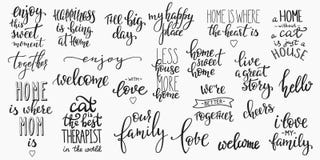 enjoy
this sweet
moment
happiness
is being
at home
the big
day
my happy
place
HOME IS WHERE
the heart is
a HOME
without a
cat
is just a
HOUSE
together
enjoy
welcome
with
love
LESS
HOUSE
MORE
HOME
home
sweet
home
live
a great
story
hello
HOME
is where
MOM
is
cat
is the best
THERAPIST
in the world
our
family
WE'RE
BETTER
Together
cheers
love
welcome
i love
my
family